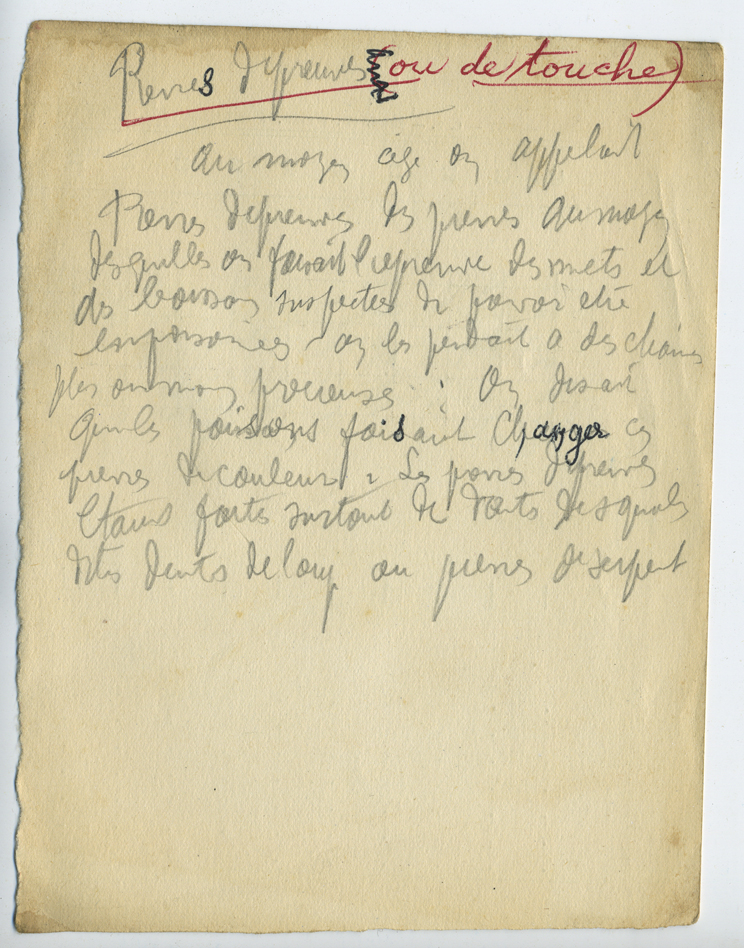 Pierres d'epreuves (ou de touche)
Au moyen age on appelait
Pierres d'epreuves des pierres au moyen
desquelles on faisait l'epreuve des mets et
des boissons suspectes de pouvoir etre
empoisonnées on les pendait a des chaines
plus ou moins precieuses. On disait
que les poissons faisaient changer ces
pierres de couleur. Les pierres d'epreuves
etaient faites surtout de dents desquals
dites dents de loup ou pierres de serpent